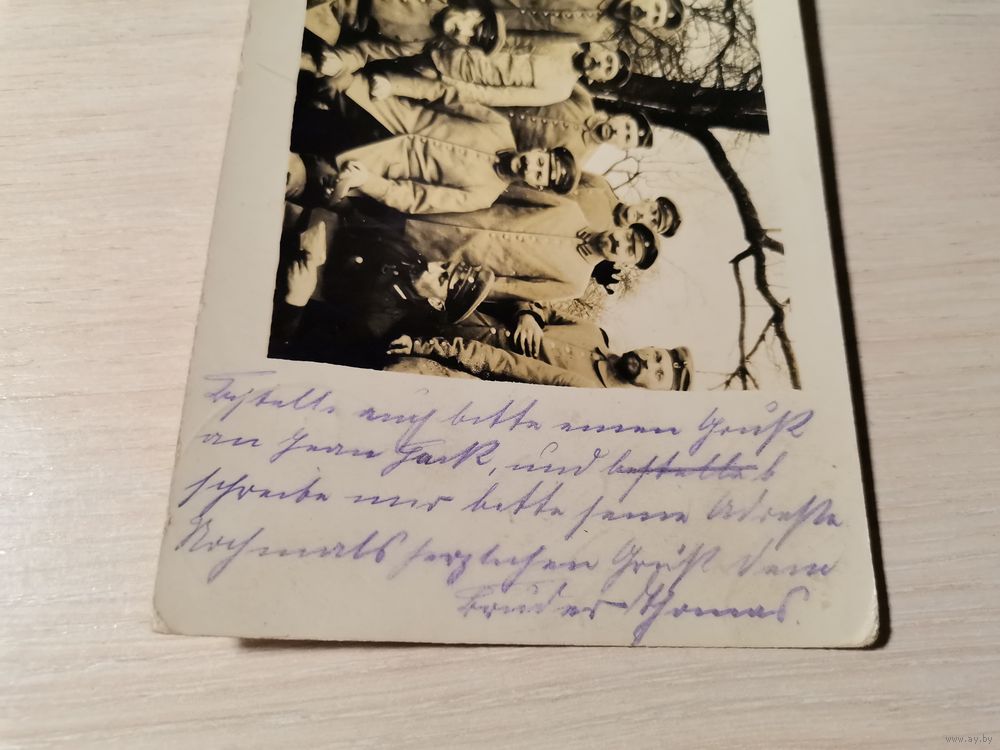 Bestelle auch bitte einen Gruß
an Jean Fack, und bestelle b
schreibe mir bitte seine Adresse
Nochmals herzlichen Gruß Dein
Bruder Thomas.
www.ay.by